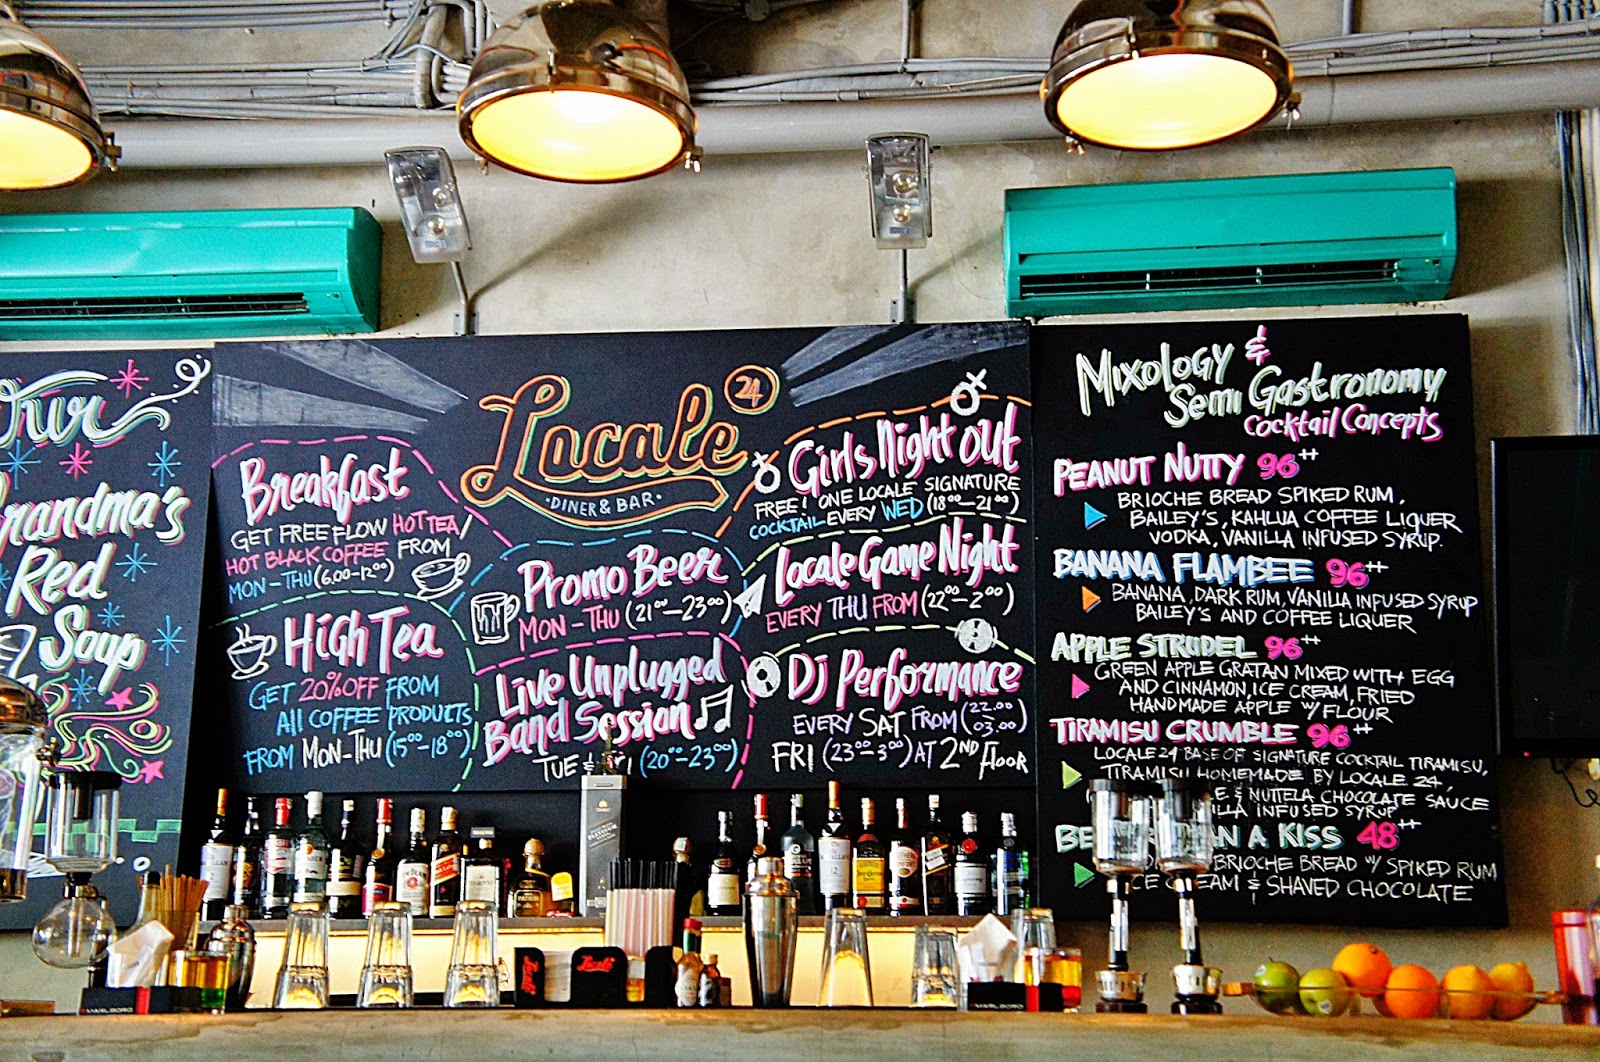 Our
Grandma's
Red
Soup
Locale 24
DINER & BAR
Breakfast
GET FREE FLOW HOT TEA/
HOT BLACK COFFEE FROM
MON-THU (6.00-12⁰⁰)
High Tea
GET 20% OFF FROM
All COFFEE PRODUCTS
FROM MON-THU (15⁰⁰-18⁰⁰)
Promo Beer
MON-THU (21⁰⁰-23⁰⁰)
Live Unplugged
Band Session
TUE & FRI (20⁰⁰-23⁰⁰)
Girls Night out
FREE! ONE LOCALE SIGNATURE
COCKTAIL EVERY WED (18⁰⁰-21⁰⁰)
Locale Game Night
EVERY THU FROM (22⁰⁰-2⁰⁰)
Dj Performance
EVERY SAT FROM (22.00-03.00)
FRI (23⁰⁰-3⁰⁰) AT 2ND floor
Mixology &
Semi Gastronomy
Cocktail Concepts
PEANUT NUTTY 96++
BRIOCHE BREAD SPIKED RUM,
BAILEY'S, KAHLUA COFFEE LIQUER
VODKA, VANILLA INFUSED SYRUP.
BANANA FLAMBEE 96++
BANANA, DARK RUM, VANILLA INFUSED SYRUP
BAILEY'S AND COFFEE LIQUER
APPLE STRUDEL 96++
GREEN APPLE GRATAN MIXED WITH EGG
AND CINNAMON, ICE CREAM, FRIED
HANDMADE APPLE W/ FLOUR
TIRAMISU CRUMBLE 96++
LOCALE 24 BASE OF SIGNATURE COCKTAIL TIRAMISU,
TIRAMISU HOMEMADE BY LOCALE 24,
& NUTTELA CHOCOLATE SAUCE
INFUSED SYRUP
A KISS 48++
BRIOCHE BREAD W/ SPIKED RUM
& SHAVED CHOCOLATE
JIM BEAM
PATRON
Locale
MARLBORO
MARLBORO